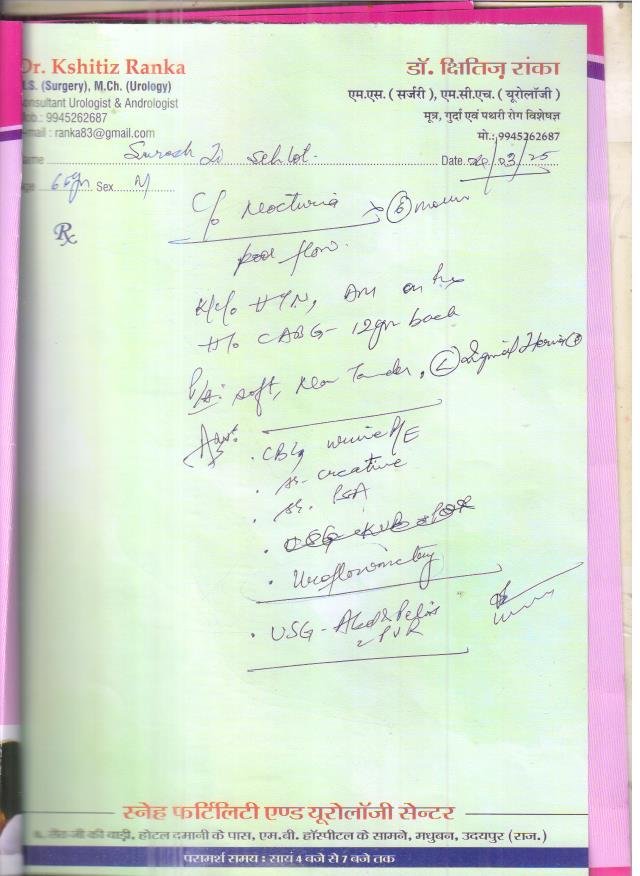 Dr. Kshitiz Ranka
M.S. (Surgery), M.Ch. (Urology)
Consultant Urologist & Andrologist
Mob.: 9945262687
E-mail : ranka83@gmail.com
डॉ. क्षितिज़ रांका
एम.एस. ( सर्जरी ), एम.सी.एच. ( यूरोलॉजी )
मूत्र, गुर्दा एवं पथरी रोग विशेषज्ञ
मो.: 9945262687
Name Suresh Date /03/25
Age Sex M
Rx
C/o Nocturia
poor flow.
K/C/o HTN, DM on
H/o CABG - 12yr back
P/A: soft, Non Tender, (L) Inguinal Hernia
Adv:
. CBC, urine R/E
. sr. creatine
. sr. PSA
. USG KUB
. Uroflowmetry
. USG - Abd & Pelvis
PVR
स्नेह फर्टिलिटी एण्ड यूरोलॉजी सेन्टर
की वाड़ी, होटल दमानी के पास, एम.बी. हॉस्पीटल के सामने, मधुबन, उदयपुर (राज.)
परामर्श समय : सायं 4 बजे से 7 बजे तक